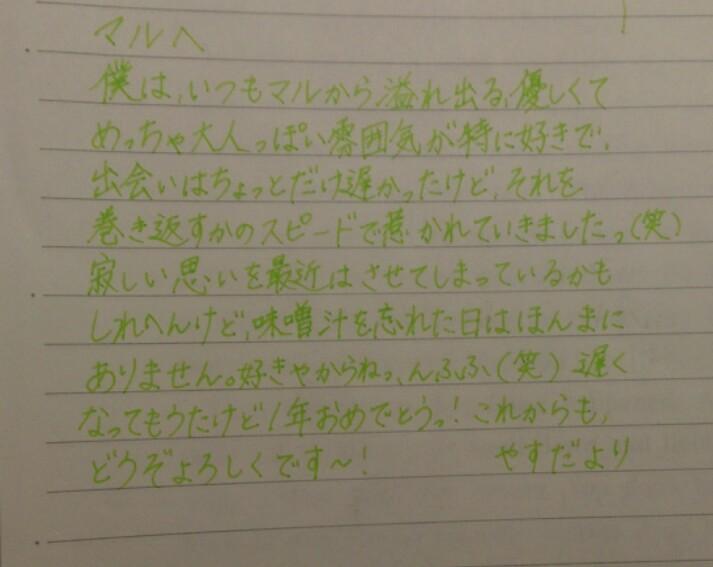 マルへ
僕は、いつもマルから溢れ出る、優しくて
めっちゃ大人っぽい雰囲気が特に好きで、
出会いはちょっとだけ遅かったけど、それを
巻き返すかのスピードで惹かれていきましたっ(笑)
寂しい思いを最近はさせてしまっているかも
しれへんけど、味噌汁を忘れた日はほんまに
ありません。好きやからねっ、んふふ(笑) 遅く
なってもうたけど1年おめでとうっ! これからも、
どうぞよろしくです〜! やすだより